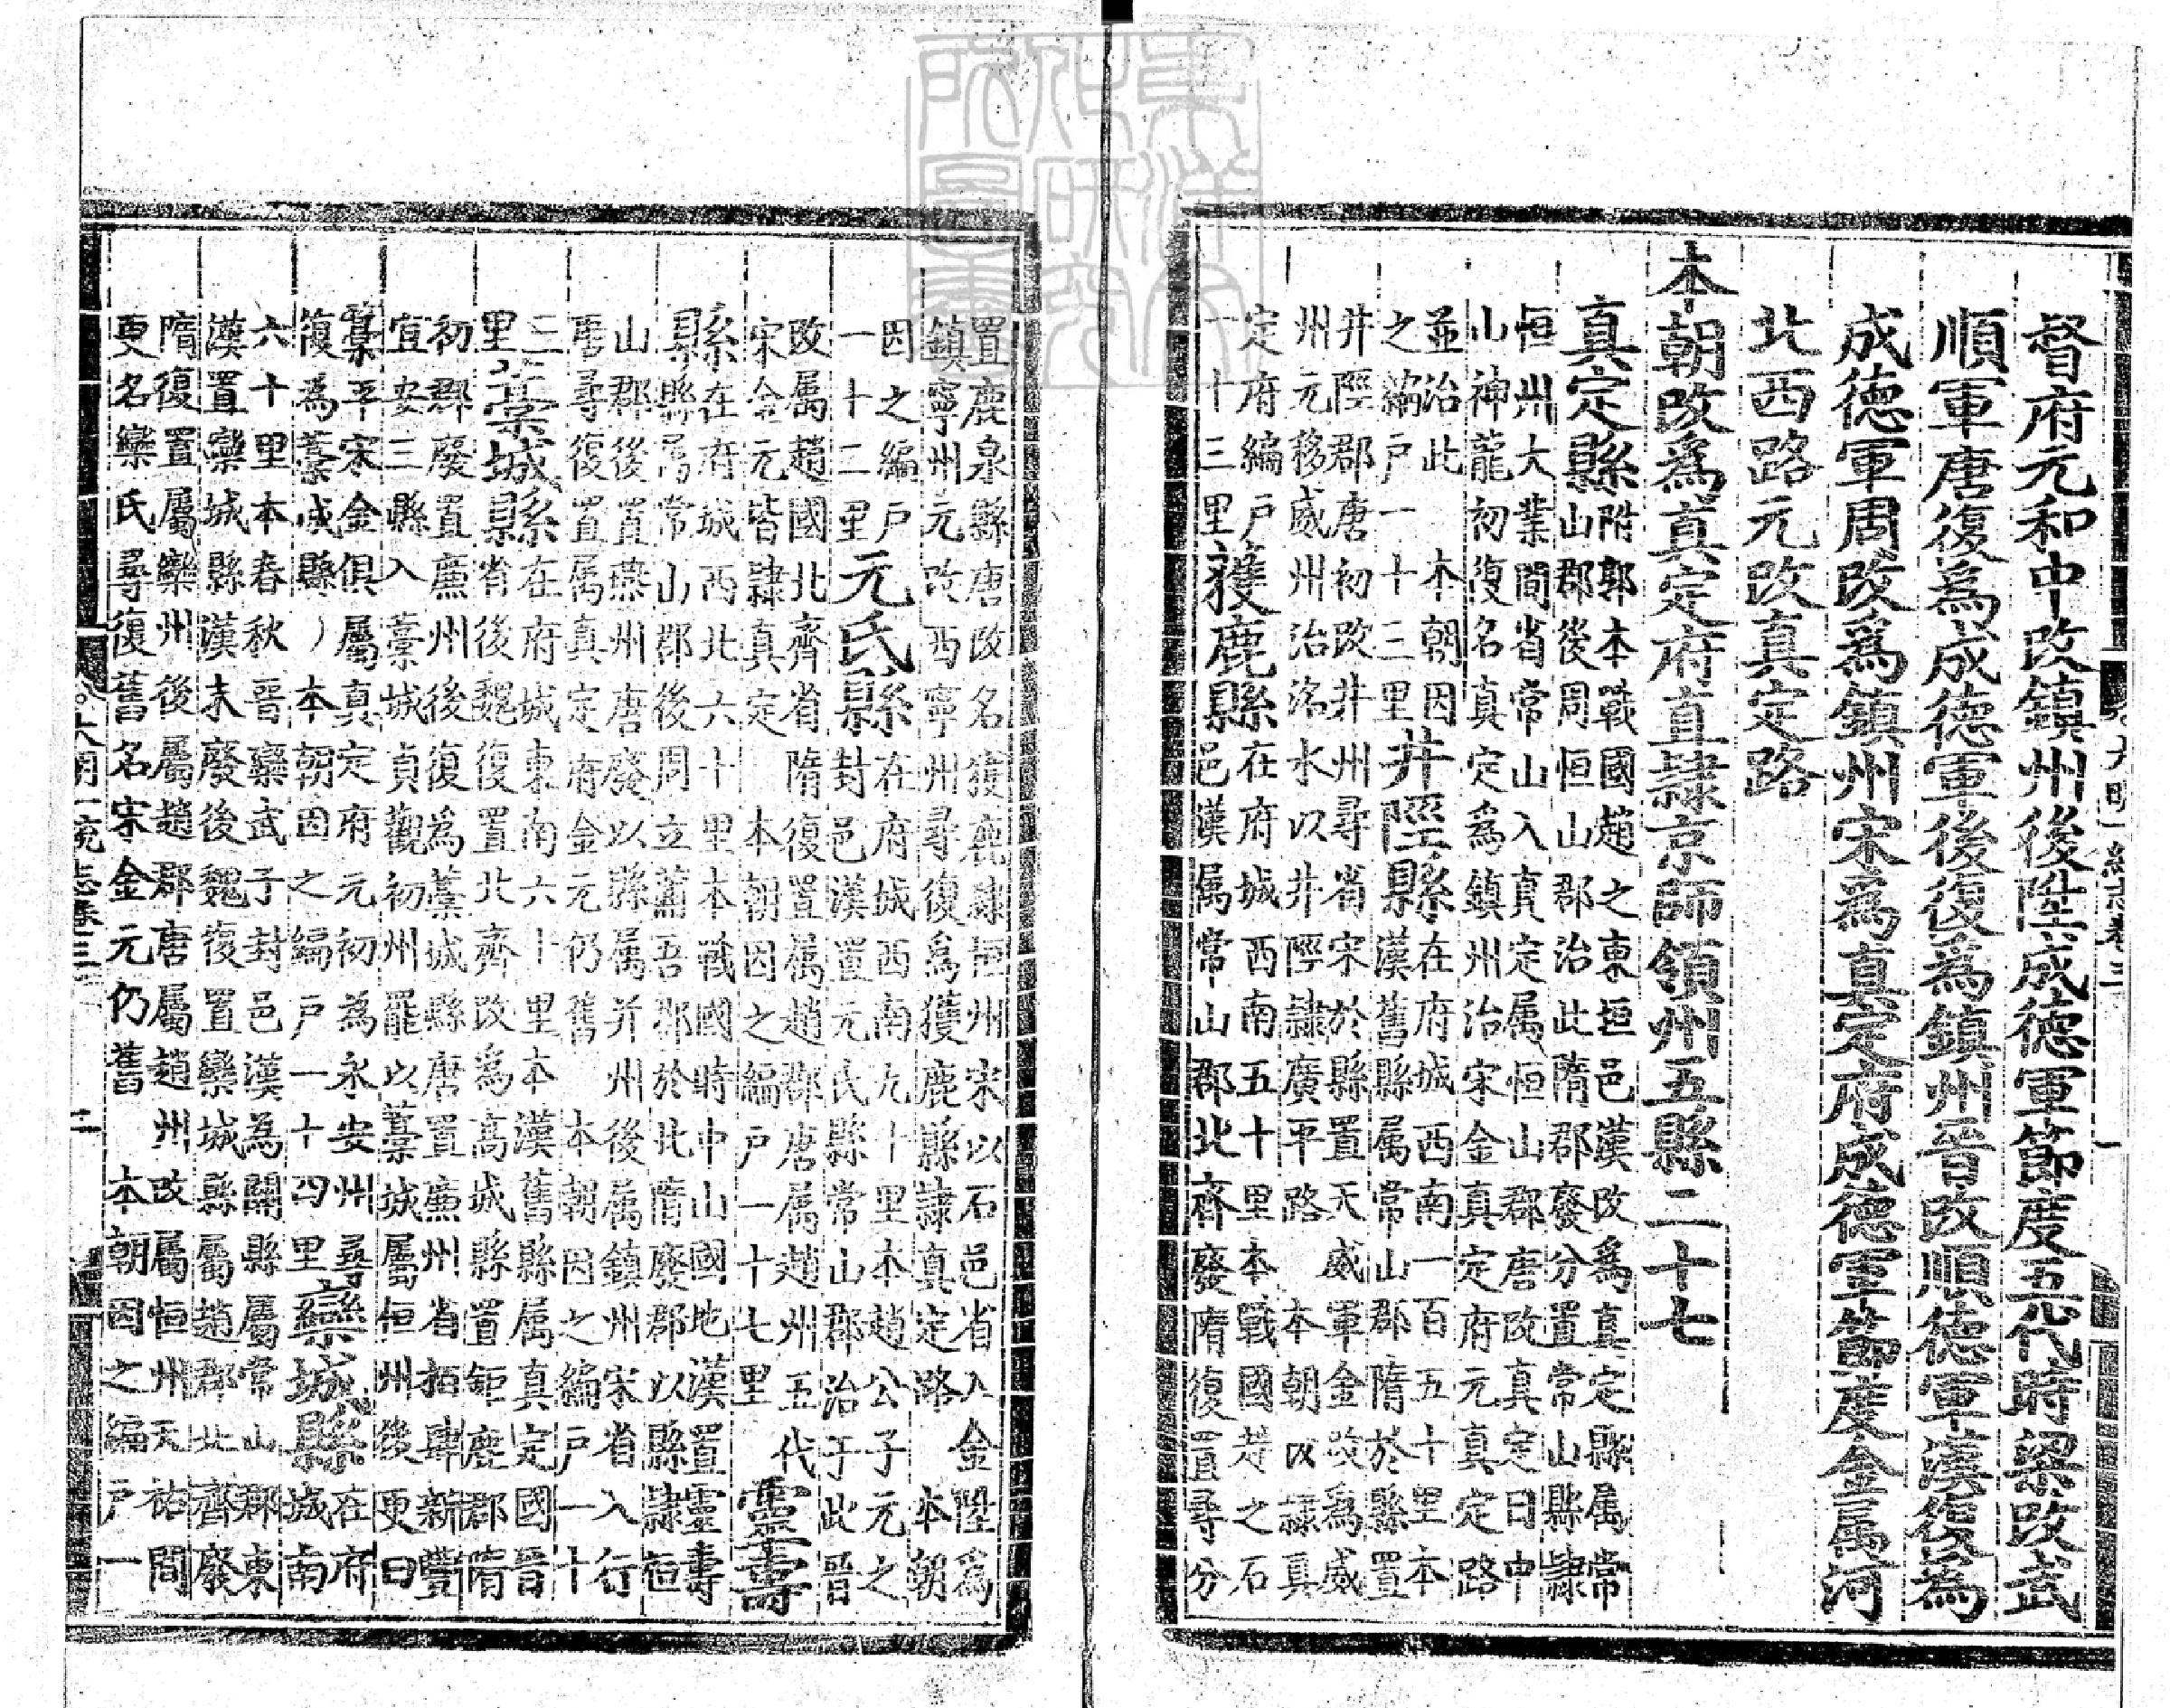 督府元和中改鎮州後陞成德軍節度五代時梁改武
順軍唐復為成德軍後復為鎮州晉改順德軍漢復為
成德軍周改為鎮州宋為真定府成德軍節度金属河
北西路元改真定路
本朝改為真定府直隸京師領州五縣二十七
真定縣附郭本戰國趙之東垣邑漢改為真定縣属常
山郡後周恒山郡治此隋郡廢分置常山縣隸
恒州大業間省常山入真定属恒山郡唐改真定曰中
山神龍初復名真定為鎮州治宋金真定府元真定路
並治此　本朝因
之編户一十三里
井陘縣在府城西南一百五十里本
漢舊縣属常山郡隋於縣置
井陘郡唐初改井州尋省宋於縣置天威軍金改為威
州元移威州治洺水以井陘隸廣平路　本朝改隸真
定府編户
一十三里
獲鹿縣在府城西南五十里本戰國趙之石
邑漢属常山郡北齊廢隋復置尋分
置鹿泉縣唐改名獲鹿隸恒州宋以石邑省入金陞為
鎮寧州元改西寧州尋復為獲鹿縣隸真定路　本朝
因之編户
一十二里
元氏縣在府城西南九十里本趙公子元之
封邑漢置元氏縣常山郡治于此晉
改属趙國北齊省隋復置属趙郡唐属趙州五代
宋金元皆隸真定　本朝因之編户一十七里
靈壽
縣在府城西北六十里本戰國時中山國地漢置靈壽
縣属常山郡後周立蒲吾郡於此隋廢郡以縣隸恒
山郡後置燕州唐廢以縣属并州後属鎮州宋省入行
唐尋復置属真定府金元仍舊　本朝因之編户一十
三
里
藁城縣在府城東南六十里本漢舊縣属真定國晉
省後魏復置北齊改為高城縣置鉅鹿郡隋
初郡廢置廉州後復為藁城縣唐置廉州省栢肆新豐
宜安三縣入藁城貞觀初州罷以藁城屬恒州後更曰
藁平宋金俱屬真定府元初為永安州尋
復為藁城縣　本朝因之編户一十四里
欒城縣在府
城南
六十里本春秋晉欒武子封邑漢為關縣屬常山郡東
漢置欒城縣漢末廢後魏復置欒城縣屬趙郡北齊廢
隋復置屬欒州後屬趙郡唐屬趙州改屬恒州天祐間
更名欒氏尋復舊名宋金元仍舊　本朝因之編户一
大明一統志卷三　二